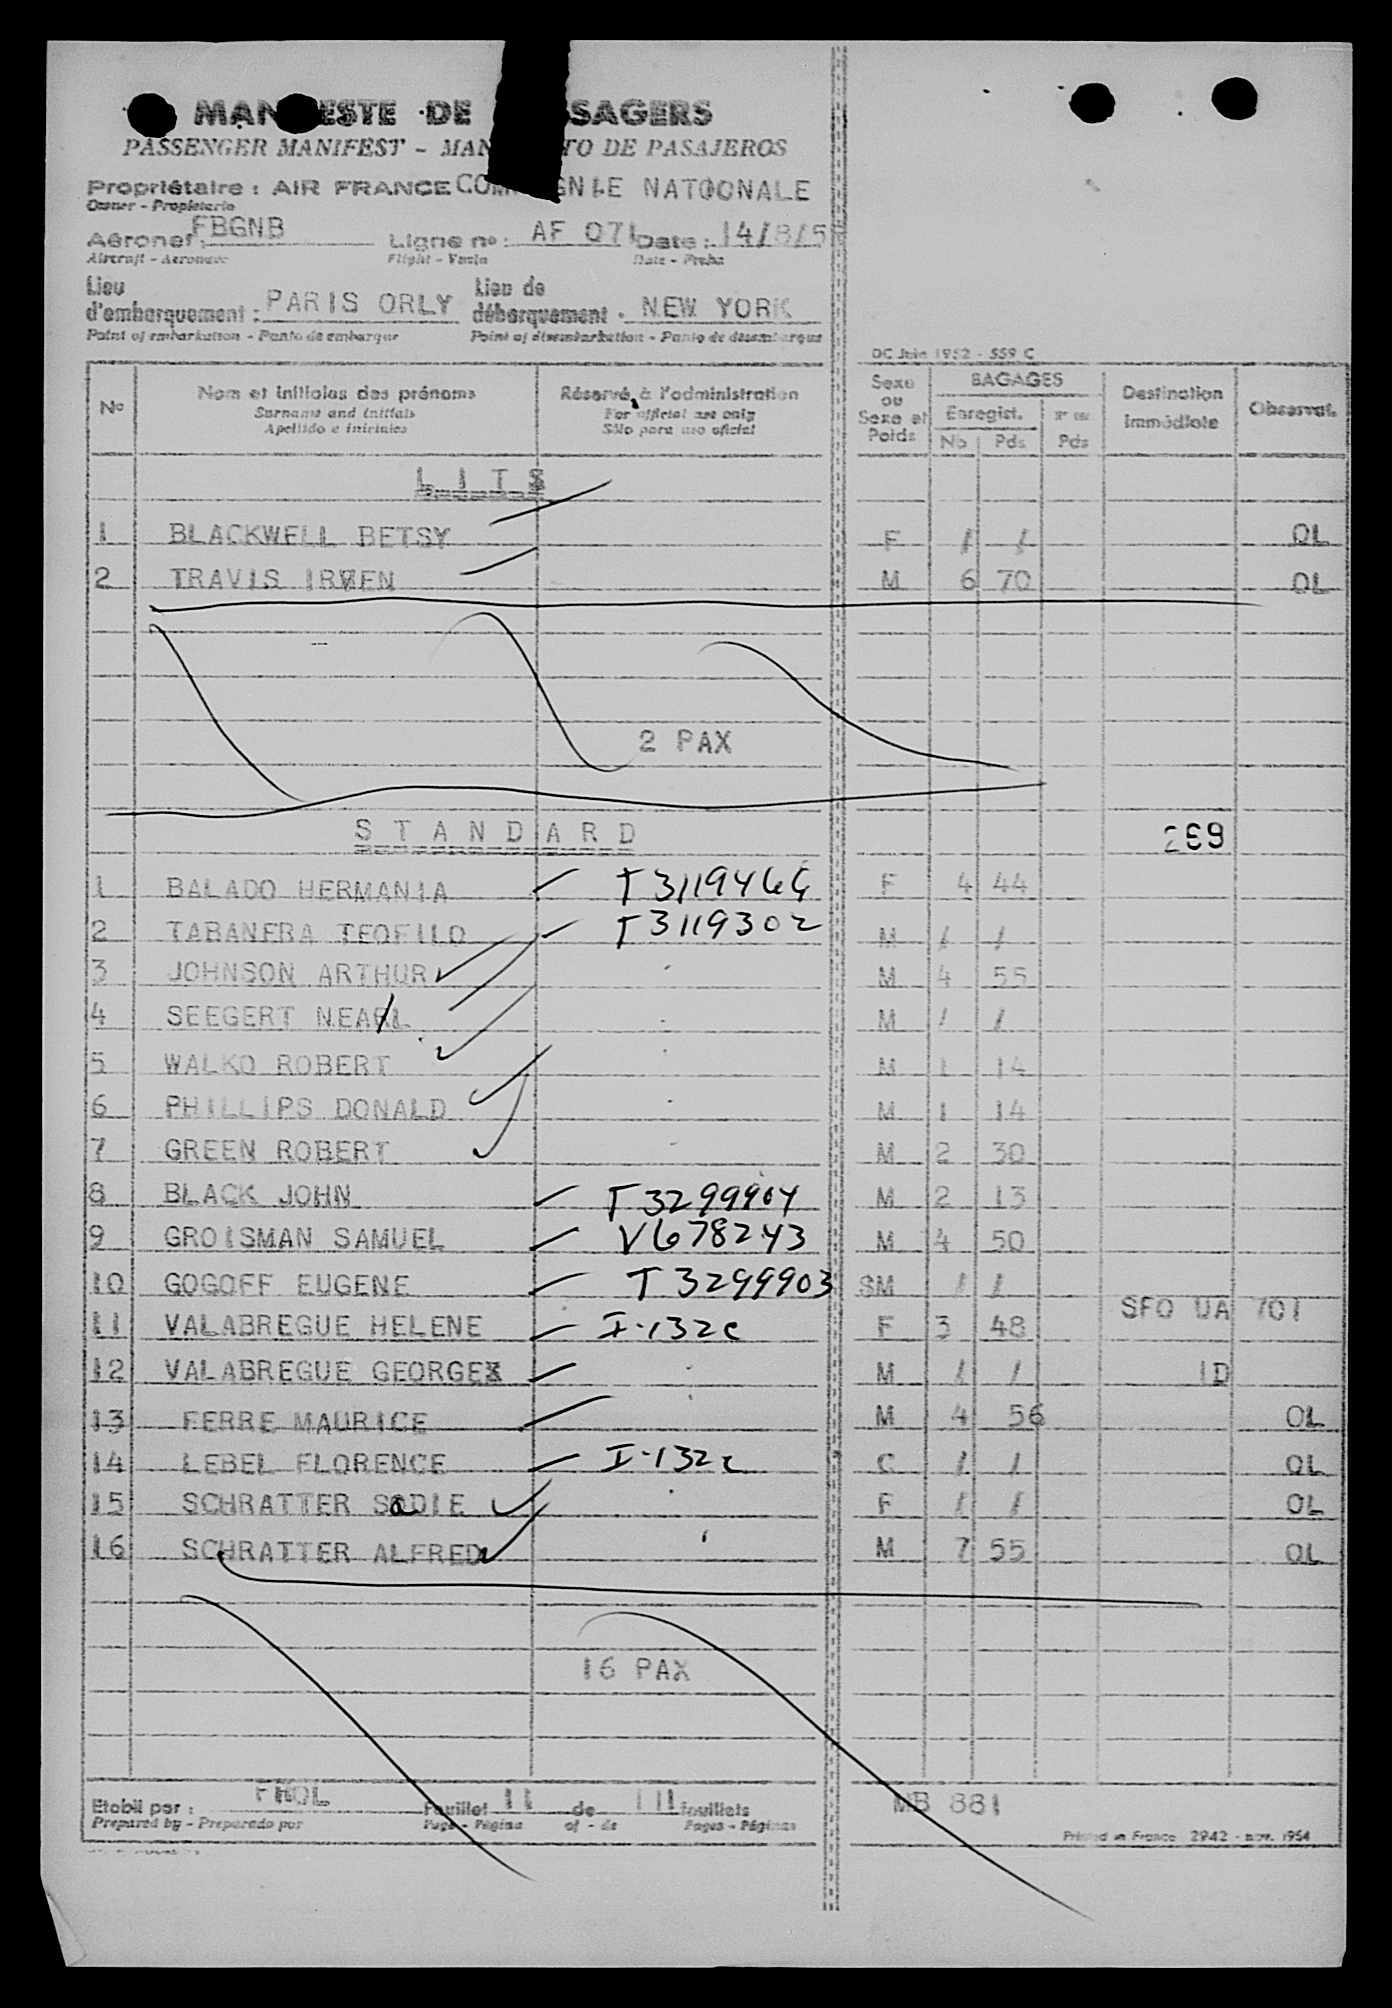 MANIFESTE DE PASSAGERS
PASSENGER MANIFEST - MANIFIESTO DE PASAJEROS
Propriétaire : AIR FRANCE COMPAGNIE NATIONALE
Owner - Propietario
Aéronef : FBGNB Ligne no : AF 071 Date : 14/8/5
Aircraft - Aeronave Flight - Vuelo Date - Fecha
Lieu d'embarquement : PARIS ORLY Lieu de débarquement . NEW YORK
Point of embarkation - Punto de embarque Point of disembarkation - Punto de desembarque
DC Juin 1952 - 559 C
No Nom et initiales des prénoms Réservé à l'administration Sexe ou Sexe et Poids BAGAGES Destination immédiate Observat.
Surname and initials For official use only Enregist.
Apellido e iniciales Sólo para uso oficial Nb Pds Pds
L I T S
1 BLACKWELL BETSY F / / OL
2 TRAVIS IRVEN M 6 70 OL
2 PAX
S T A N D A R D 269
1 BALADO HERMANIA T3119466 F 4 44
2 TABANERA TEOFILO T3119302 M / /
3 JOHNSON ARTHUR M 4 55
4 SEEGERT NEAL M / /
5 WALKO ROBERT M 1 14
6 PHILLIPS DONALD M 1 14
7 GREEN ROBERT M 2 30
8 BLACK JOHN T 3299904 M 2 13
9 GROISMAN SAMUEL V678243 M 4 50
10 GOGOFF EUGENE T 3299903 SM / /
11 VALABREGUE HELENE I-132c F 3 48 SFO UA 701
12 VALABREGUE GEORGES M / / ID
13 FERRE MAURICE M 4 56 OL
14 LEBEL FLORENCE I-132c C / / OL
15 SCHRATTER SaDIE F / / OL
16 SCHRATTER ALFRED M 7 55 OL
16 PAX
Etabli par : FHOL Feuillet 11 de 111 feuillets MB 881
Prepared by - Preparado por Page - Página of - de Pages - Páginas
Printed in France 2942 - nov. 1954